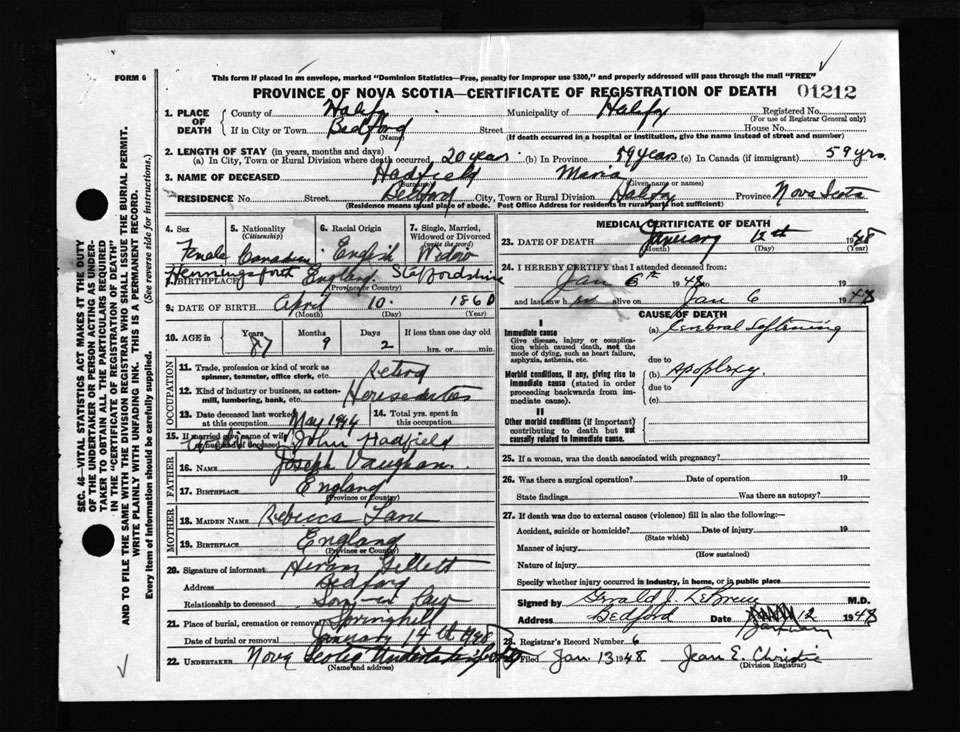 FORM 6
This form if placed in an envelope, marked "Dominion Statistics—Free, penalty for improper use $300," and properly addressed will pass through the mail "FREE"
PROVINCE OF NOVA SCOTIA—CERTIFICATE OF REGISTRATION OF DEATH 01212
1. PLACE OF DEATH
County of Halifx Municipality of Halifx Registered No.
(For use of Registrar General only)
If in City or Town Bedford Street House No.
(Name) (If death occurred in a hospital or institution, give the name instead of street and number)
2. LENGTH OF STAY (in years, months and days)
(a) In City, Town or Rural Division where death occurred 20 years (b) In Province 59 years (c) In Canada (if immigrant) 59 yrs.
3. NAME OF DECEASED Hadfield Maria
(Surname) (Given name or names)
RESIDENCE No. Street Bedford City, Town or Rural Division Halifx Province Nova Scotia
(Residence means usual place of abode. Post Office Address for residents in rural parts not sufficient)
4. Sex Female
5. Nationality (Citizenship) Canadian
6. Racial Origin English
7. Single, Married, Widowed or Divorced (write the word) Widow
8. BIRTHPLACE England Staffordshire
(Province or Country)
9. DATE OF BIRTH April 10. 1860
(Month) (Day) (Year)
10. AGE in Years 87 Months 9 Days 2 If less than one day old
hrs. or min.
OCCUPATION
11. Trade, profession or kind of work as spinner, teamster, office clerk, etc. Retired
12. Kind of Industry or business, as cotton-mill, lumbering, bank, etc.
13. Date deceased last worked at this occupation May 1946
14. Total yrs. spent in this occupation
15. If married give name of wife or husband of deceased John Hadfield
FATHER
16. NAME Joseph Vaughan
17. BIRTHPLACE England
(Province or Country)
MOTHER
18. MAIDEN NAME Rebecca Lane
19. BIRTHPLACE England
(Province or Country)
20. Signature of informant Hiram Gillett
Address Bedford
Relationship to deceased Son-in Law
21. Place of burial, cremation or removal Springhill
Date of burial or removal January 14th 1948
22. UNDERTAKER Nova Scotia
(Name and address)
MEDICAL CERTIFICATE OF DEATH
23. DATE OF DEATH January 12th 1948
(Month) (Day)
24. I HEREBY CERTIFY that I attended deceased from:
Jan 6th 1948 to
and last saw h er alive on Jan 6 1948
CAUSE OF DEATH
I
Immediate cause
Give disease, injury or complication which caused death, not the mode of dying, such as heart failure, asphyxia, asthenia, etc.
(a) Cerebral Softening
due to
Morbid conditions, if any, giving rise to immediate cause (stated in order proceeding backwards from immediate cause).
(b) Apoplexy.
due to
(c)
II
Other morbid conditions (if important) contributing to death but not causally related to immediate cause.
25. If a woman, was the death associated with pregnancy?
26. Was there a surgical operation? Date of operation 19
State findings Was there an autopsy?
27. If death was due to external causes (violence) fill in also the following:—
Accident, suicide or homicide? Date of injury 19
(State which)
Manner of injury
(How sustained)
Nature of injury
Specify whether injury occurred in industry, in home, or in public place
Signed by Gerald J. LeBrun M.D.
Address Bedford Date 12 1948
January
28. Registrar's Record Number 6
Filed Jan 13 1948 Jean E. Christie
(Division Registrar)
SEC. 46—VITAL STATISTICS ACT MAKES IT THE DUTY
OF THE UNDERTAKER OR PERSON ACTING AS UNDER-
TAKER TO OBTAIN ALL THE PARTICULARS REQUIRED
IN THE "CERTIFICATE OF REGISTRATION OF DEATH"
AND TO FILE THE SAME WITH THE DIVISION REGISTRAR WHO SHALL ISSUE THE BURIAL PERMIT.
WRITE PLAINLY WITH UNFADING INK. THIS IS A PERMANENT RECORD.
Every item of Information should be carefully supplied. (See reverse side for instructions.)